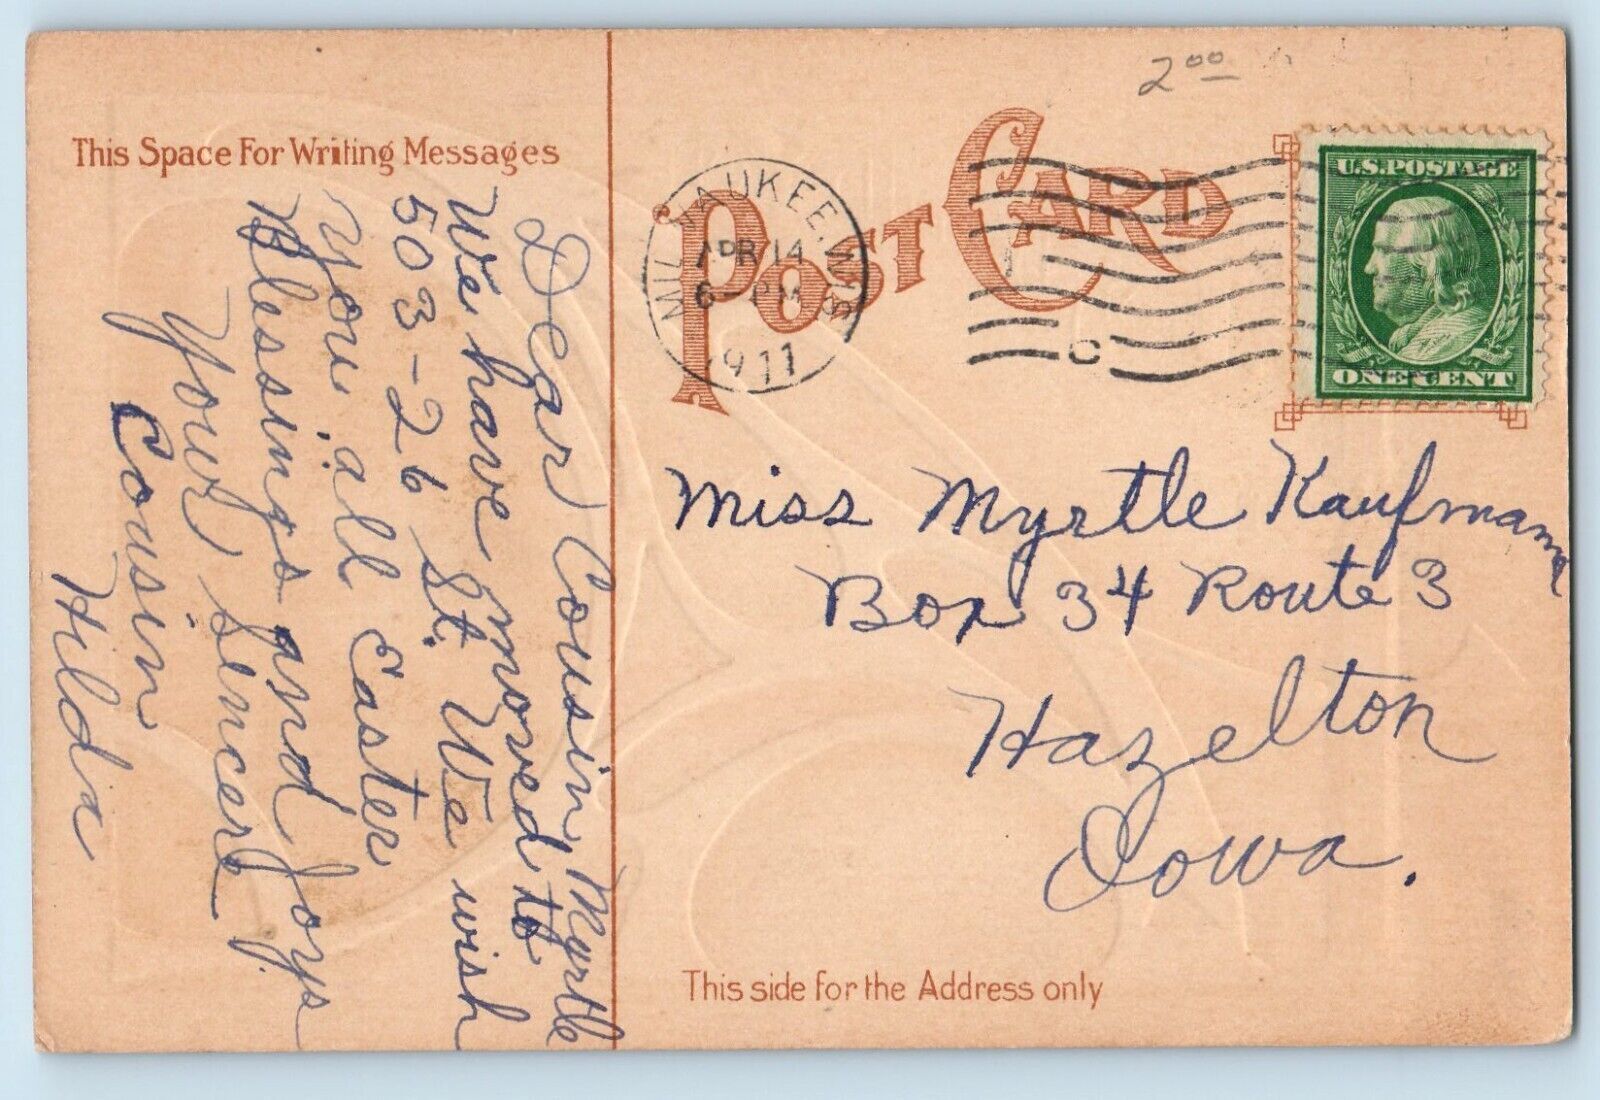 2⁰⁰
This Space For Writing Messages
POST CARD
MILWAUKEE, WIS
APR 14
6-PM
1911
U.S. POSTAGE
ONE CENT
Dear Cousin Myrtle
We have moved to
503-26 St. We wish
you all Easter
Blessings and Joys
Your Sincere
Cousin
Hilda
Miss Myrtle Kaufmann
Box 34 Route 3
Hazelton
Iowa.
This side for the Address only